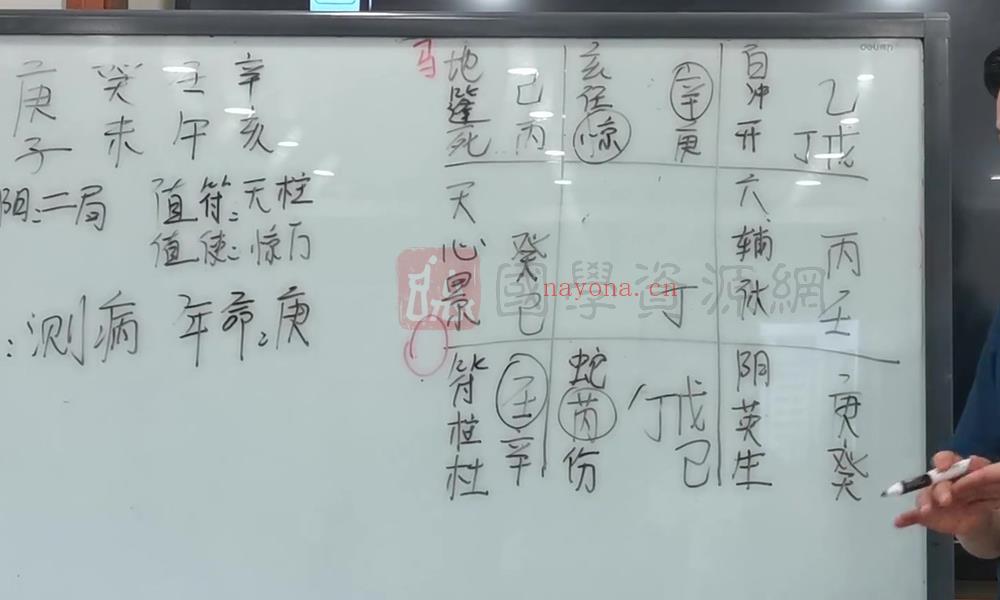 庚 癸 壬 辛
子 未 午 亥
阴:二局 值符:天柱
值使:惊门
:测病 年命:庚
马
地蓬死 己丙
玄任惊 辛庚
白冲开 乙丁戊
天心景 癸己
丁
六辅休 丙壬
符柱杜 壬辛
蛇芮伤 丁戊己
阴英生 庚癸
國學資源網
nayona.cn
deli